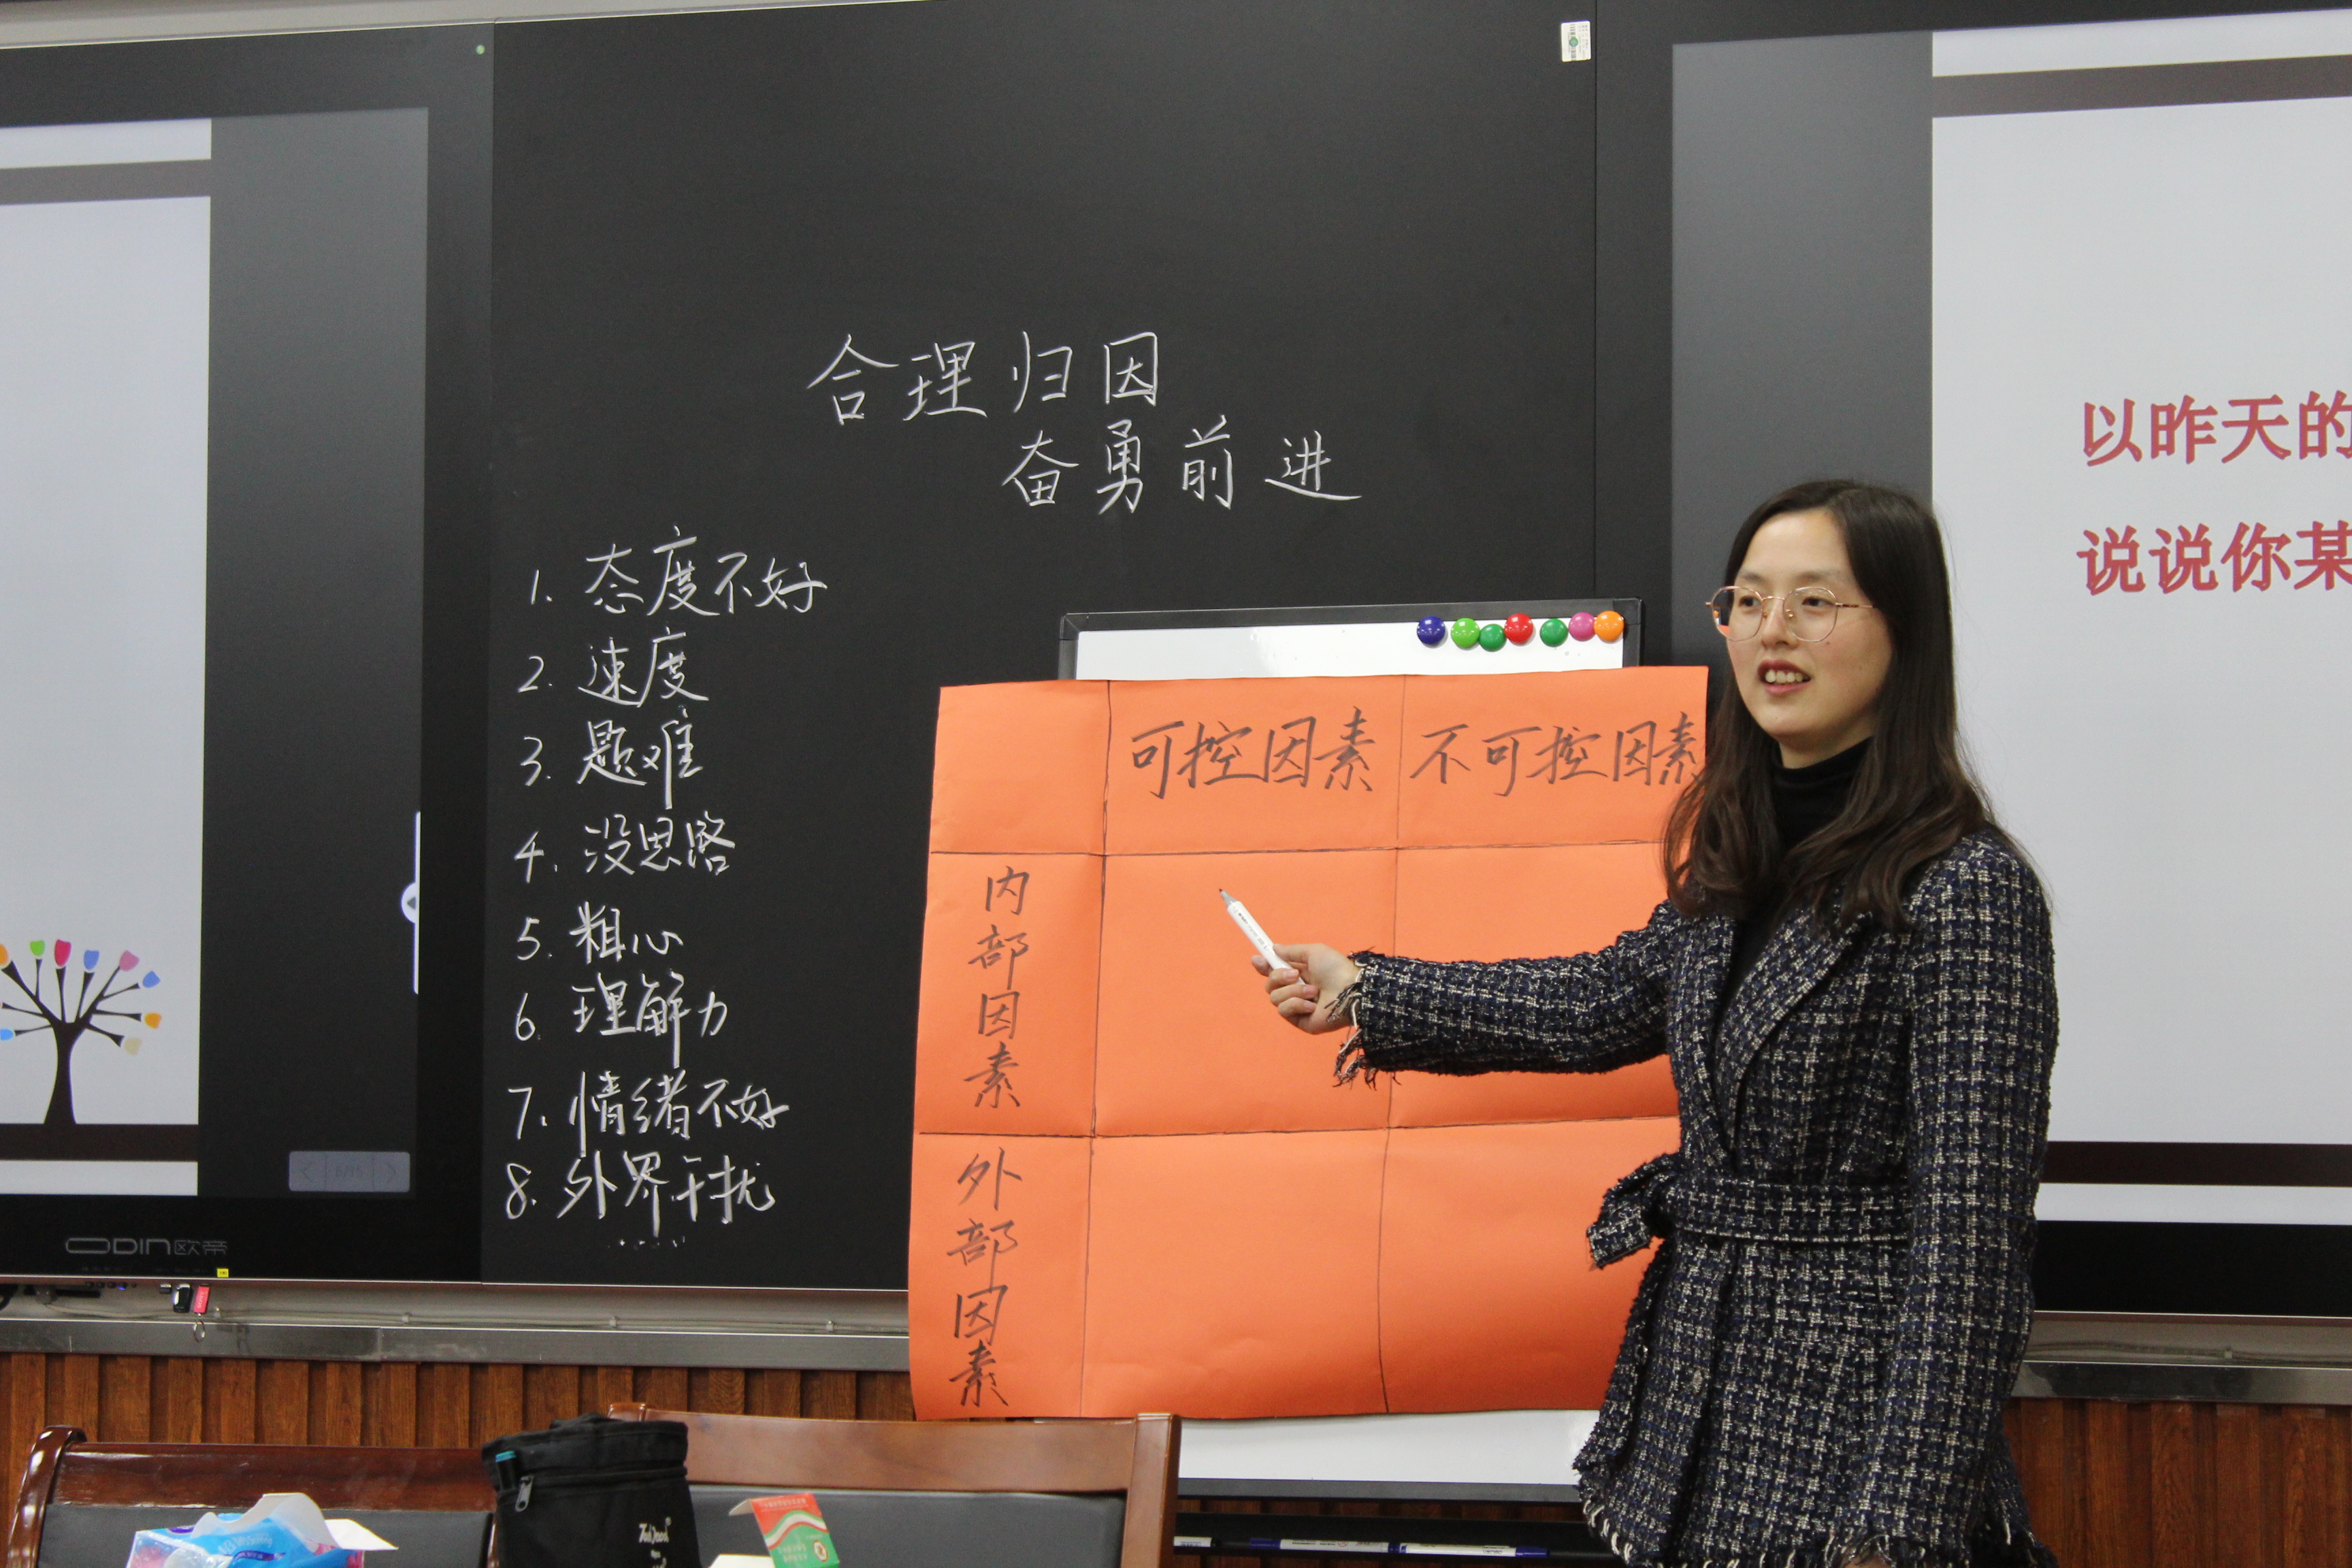 合理归因
奋勇前进
1. 态度不好
2. 速度
3. 题难
4. 没思路
5. 粗心
6. 理解力
7. 情绪不好
8. 外界干扰
......
可控因素 不可控因素
内部因素
外部因素
以昨天的
说说你某
ODIN欧帝